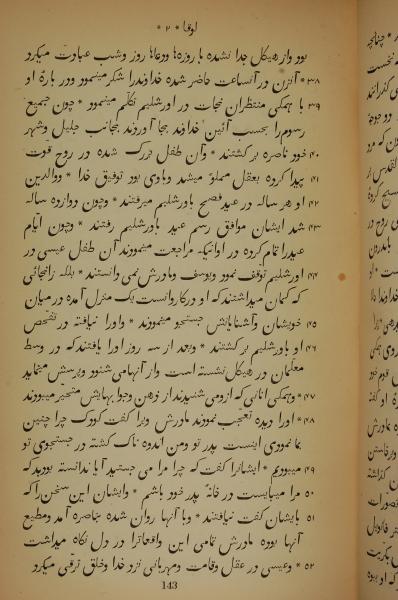 لوقا * ۲ *
بود واز هیکل جدا نشده با روزه‌ها ودعاها روز وشب عبادت میکرد
۳۸ * آنزن در آنساعت حاضر شده خداوندرا شکر مینمود ودر بارهٔ او
۳۹ با همگی منتظران نجات در اورشلیم تکلّم مینمود * چون جمیع
رسوم را بحسب آئین خداوند بجا آوردند بجانب جلیل وشهر
۴۰ خود ناصره بر گشتند * وآن طفل بزرگ شده در روح قوت
۴۱ پیدا کرده بعقل مملوّ میشد وباوی بود توفیق خدا * ووالدین
۴۲ او هر ساله در عید فصح باورشلیم میرفتند * وچون دوازده ساله
۴۳ شد ایشان موافق رسم عید باورشلیم رفتند * وچون ایّام
عیدرا تمام کرده در اوانیکه مراجعت مینمودند آن طفل عیسی در
۴۴ اورشلیم توقف نمود ویوسف ومادرش نمی دانستند * بلکه زانجائی
که گمان میداشتند که او در کاروانست یک منزل آمده در میان
۴۵ خویشان وآشنایانش جستجو مینمودند * واورا نیافته در تفحّص
۴۶ او باورشلیم بر گشتند * وبعد از سه روز اورا یافتند که در وسط
معلمان در هیکل نشسته است واز آنها می شنود وپرسش مینماید
۴۷ * وهمگی آنانی که ازو می شنیدند از ذهن وجوابهایش متحیر میبودند
۴۸ * اورا دیده تعجب نمودند مادرش ویرا گفت کودک چرا چنین
بما نمودی اینست پدر تو ومن اندوه ناک گشته در جستجوی تو
۴۹ میبودیم * ایشانرا گفت که چرا مرا می جستید آیا ندانسته بودید که
۵۰ مرا میبایست در خانهٔ پدر خود باشم * وایشان این سخن را که
۵۱ بایشان گفت نیافتند * وبا آنها روان شده بناصره آمد ومطیع
آنها بوده مادرش تمامی این واقعاترا در دل نگاه میداشت
۵۲ * وعیسی در عقل وقامت ومهربانی نزد خدا وخلق ترقّی میکرد
143